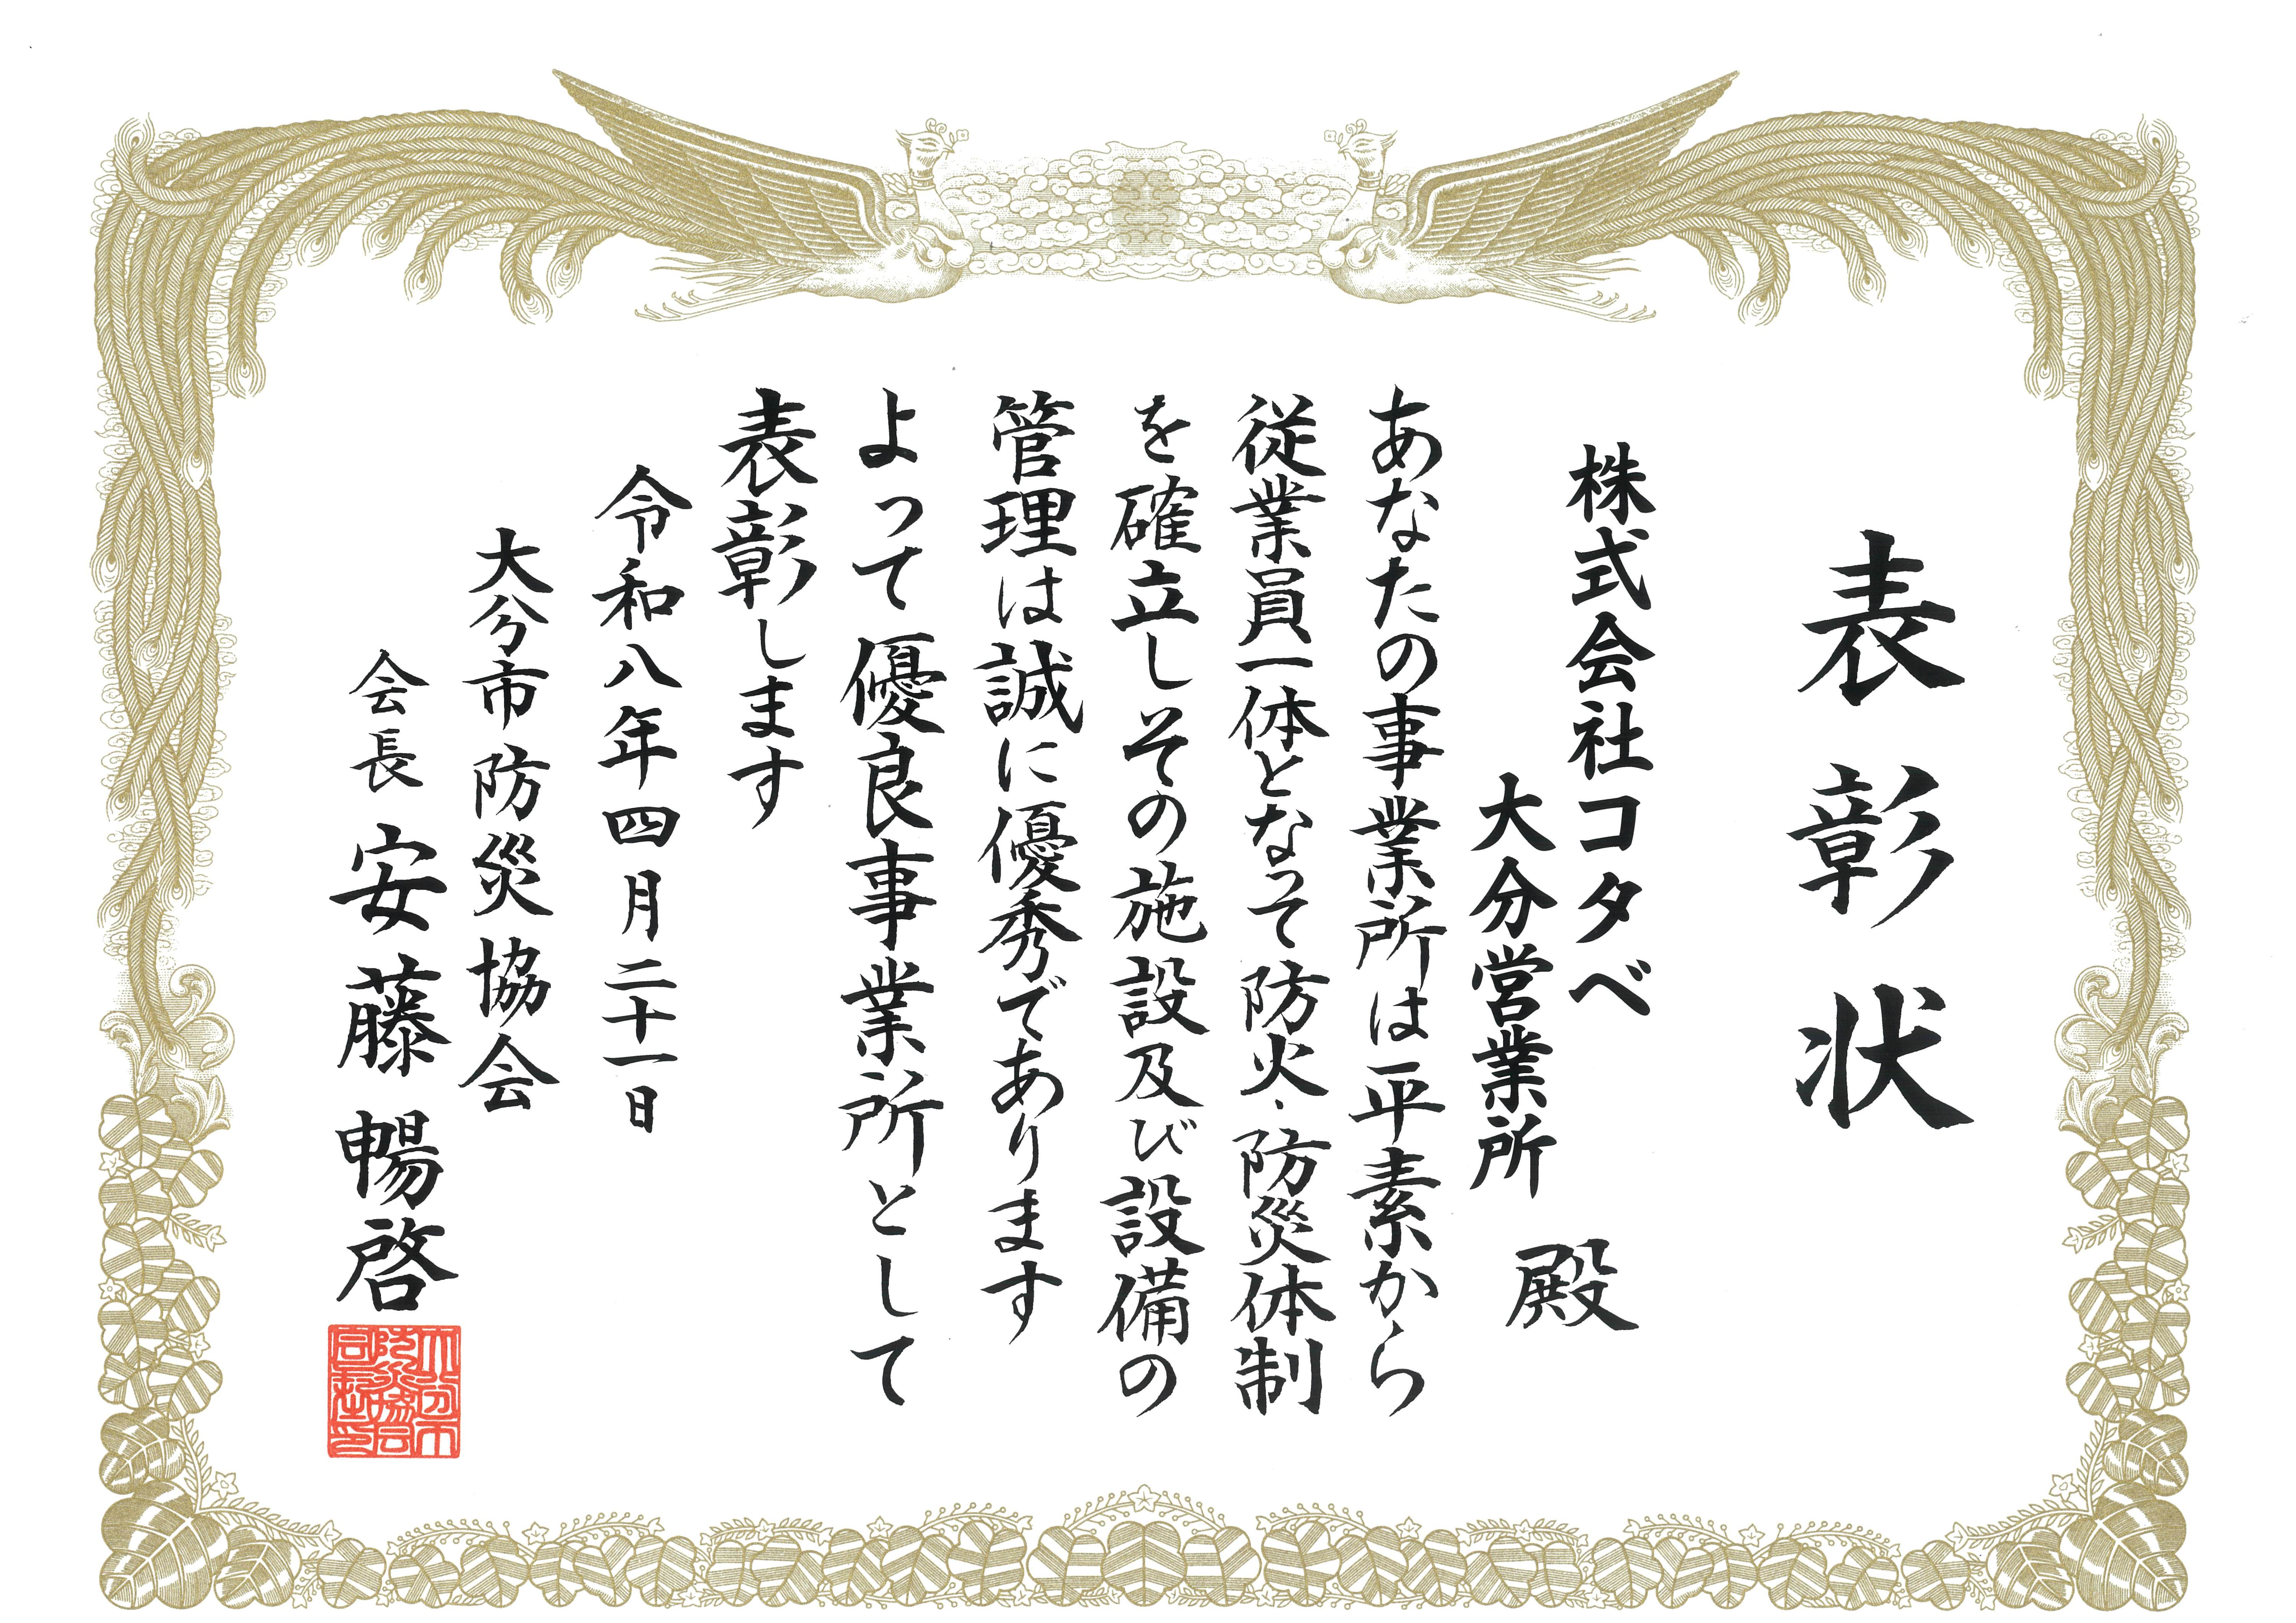 表彰状
株式会社コタベ
大分営業所
殿
あなたの事業所は平素から
従業員一体となって防火・防災体制
を確立しその施設及び設備の
管理は誠に優秀であります
よって優良事業所として
表彰します
令和八年四月二十一日
大分市防災協会
会長 安藤暢啓
大分市
防災協会
会長之印